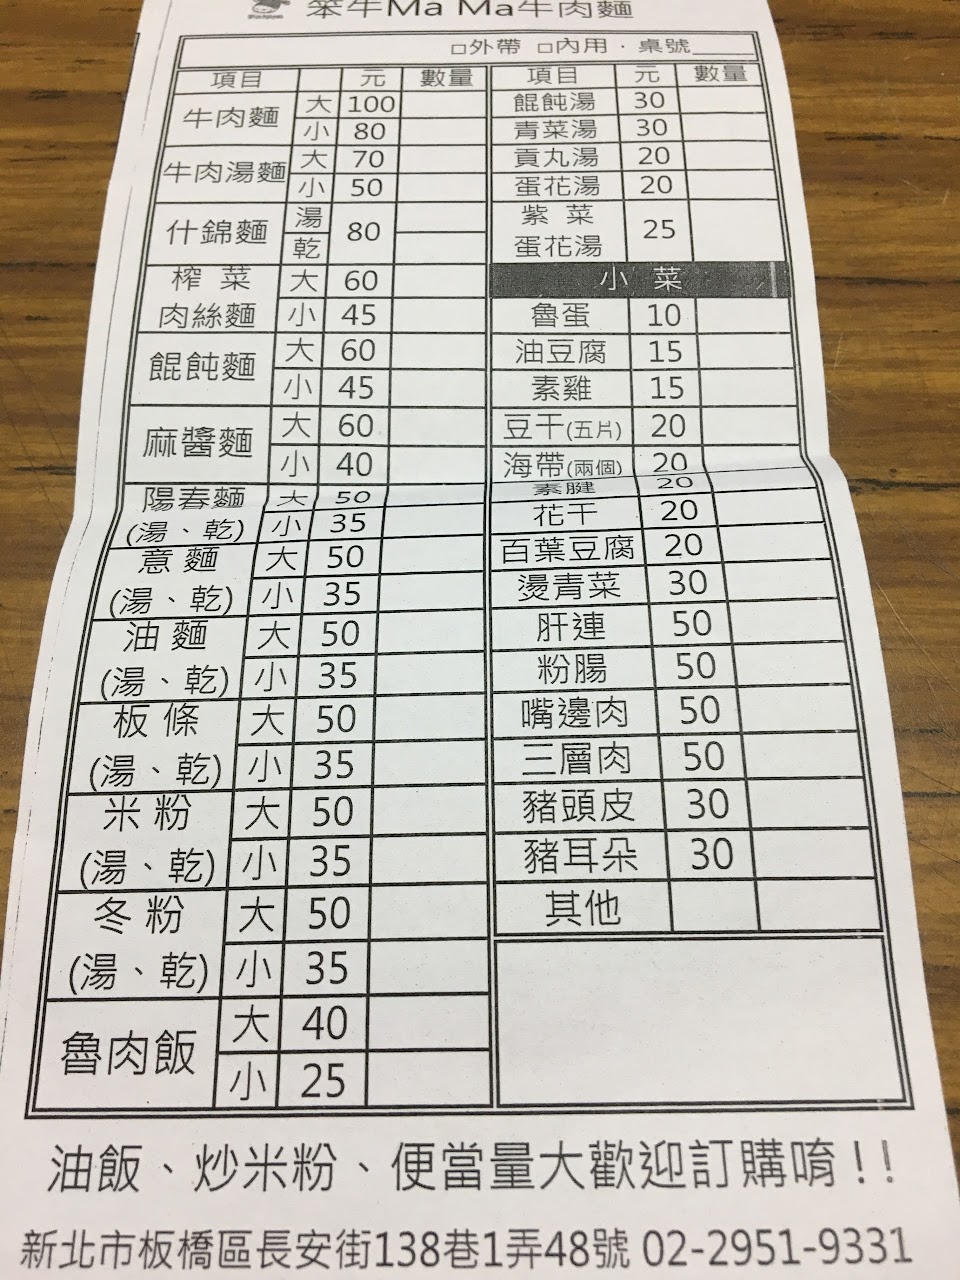 笨牛Ma Ma牛肉麵
□外帶 □內用．桌號
項目 元 數量
牛肉麵 大 100
小 80
牛肉湯麵 大 70
小 50
什錦麵 湯 80
乾
榨菜 大 60
肉絲麵 小 45
餛飩麵 大 60
小 45
麻醬麵 大 60
小 40
陽春麵 大 50
(湯、乾) 小 35
意麵 大 50
(湯、乾) 小 35
油麵 大 50
(湯、乾) 小 35
板條 大 50
(湯、乾) 小 35
米粉 大 50
(湯、乾) 小 35
冬粉 大 50
(湯、乾) 小 35
魯肉飯 大 40
小 25
項目 元 數量
餛飩湯 30
青菜湯 30
貢丸湯 20
蛋花湯 20
紫菜
蛋花湯 25
小菜
魯蛋 10
油豆腐 15
素雞 15
豆干(五片) 20
海帶(兩個) 20
素腱 20
花干 20
百葉豆腐 20
燙青菜 30
肝連 50
粉腸 50
嘴邊肉 50
三層肉 50
豬頭皮 30
豬耳朵 30
其他
油飯、炒米粉、便當量大歡迎訂購唷!!
新北市板橋區長安街138巷1弄48號 02-2951-9331